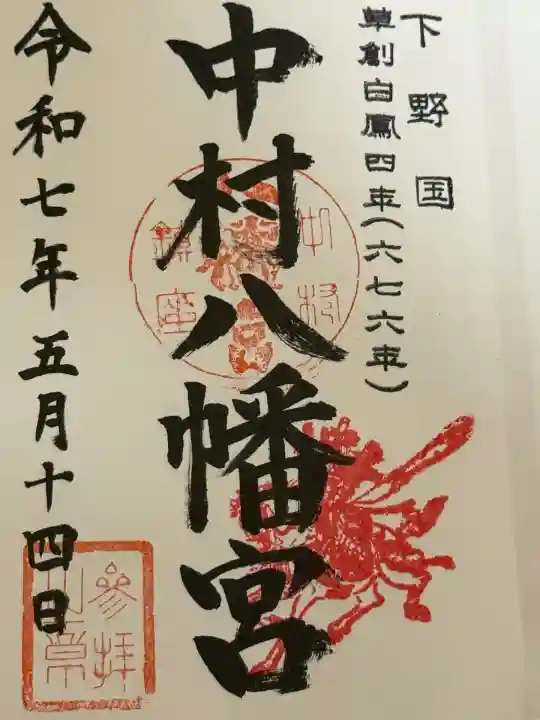 下野国
草創白鳳四年(六七六年)
中村八幡宮
令和七年五月十四日
中村
鎮座
参拝